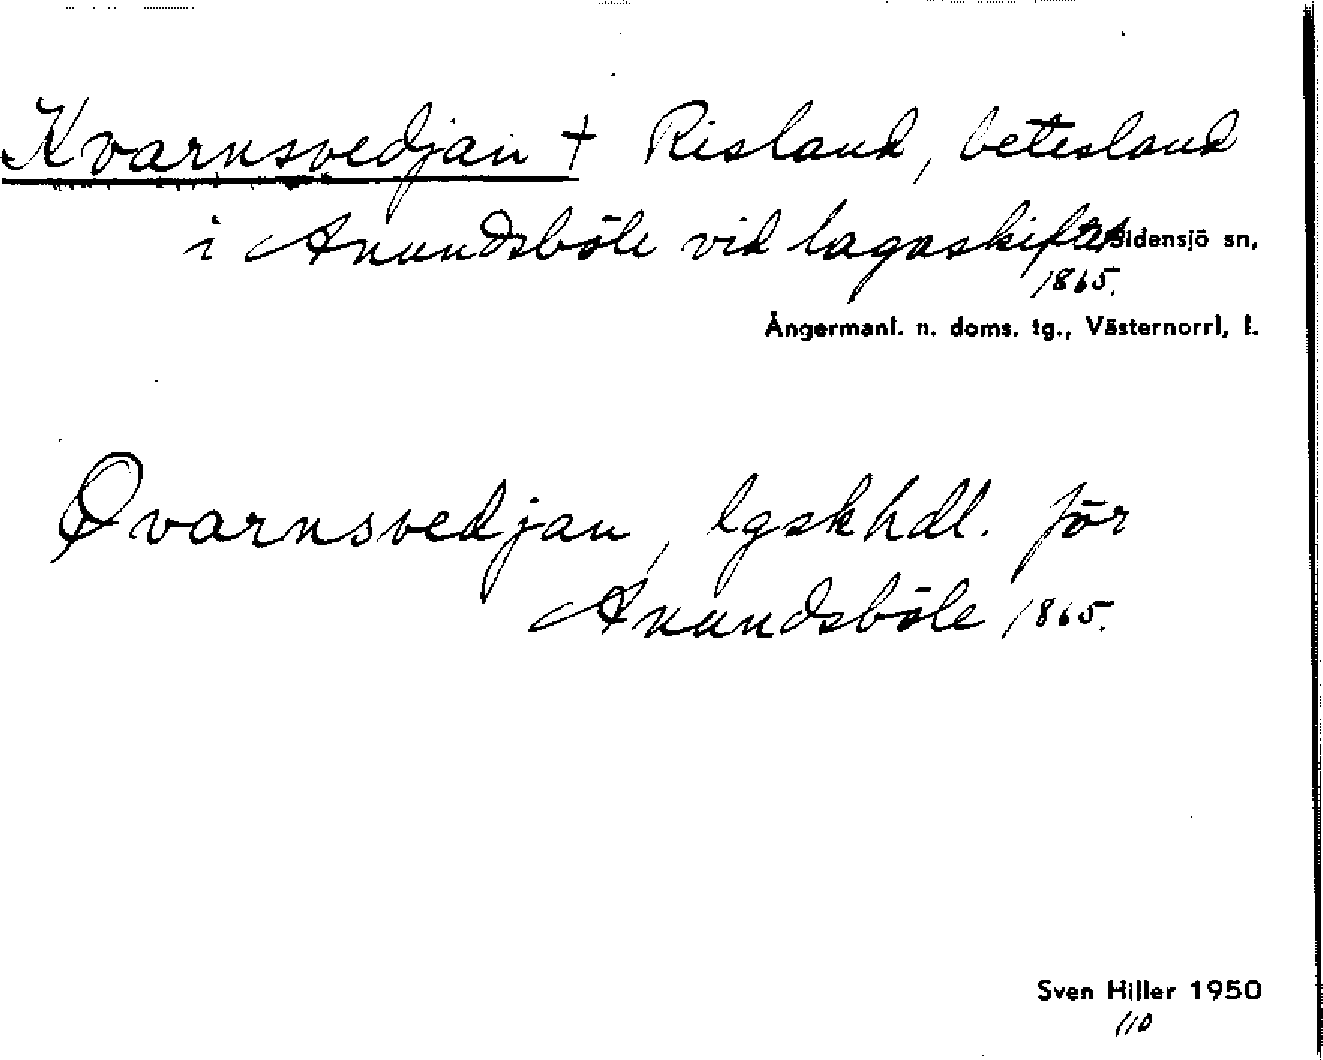 Kvarnsvedjan † Risland, betesland
i Anundsböle vid lagaskifte Sidensjö sn,
1865.
Ångermanl. n. doms. tg., Västernorrl, l.
Qvarnsvedjan, lgskhdl. för
Anundsböle 1865.
Sven Hiller 1950
110